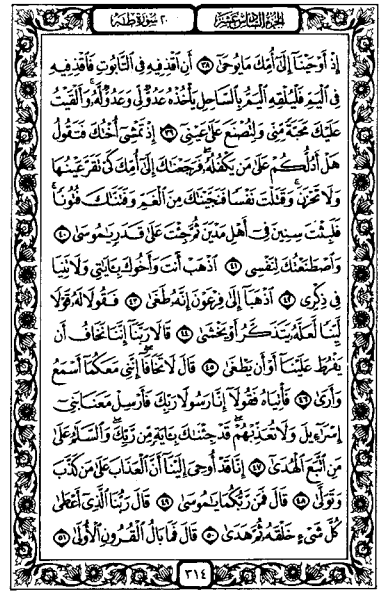 الجزء السادس عشر ٢٠ سورة طه
إِذْ أَوْحَيْنَآ إِلَىٰٓ أُمِّكَ مَا يُوحَىٰٓ ٣٨ أَنِ ٱقْذِفِيهِ فِي ٱلتَّابُوتِ فَٱقْذِفِيهِ
فِي ٱلْيَمِّ فَلْيُلْقِهِ ٱلْيَمُّ بِٱلسَّاحِلِ يَأْخُذْهُ عَدُوٌّ لِّي وَعَدُوٌّ لَّهُۥ وَأَلْقَيْتُ
عَلَيْكَ مَحَبَّةً مِّنِّي وَلِتُصْنَعَ عَلَىٰ عَيْنِيٓ ٣٩ إِذْ تَمْشِيٓ أُخْتُكَ فَتَقُولُ
هَلْ أَدُلُّكُمْ عَلَىٰ مَن يَكْفُلُهُۥ فَرَجَعْنَٰكَ إِلَىٰٓ أُمِّكَ كَيْ تَقَرَّ عَيْنُهَا
وَلَا تَحْزَنَ وَقَتَلْتَ نَفْسًا فَنَجَّيْنَٰكَ مِنَ ٱلْغَمِّ وَفَتَنَّٰكَ فُتُونًا
فَلَبِثْتَ سِنِينَ فِيٓ أَهْلِ مَدْيَنَ ثُمَّ جِئْتَ عَلَىٰ قَدَرٍ يَٰمُوسَىٰ ٤٠
وَٱصْطَنَعْتُكَ لِنَفْسِي ٤١ ٱذْهَبْ أَنتَ وَأَخُوكَ بِـَٔايَٰتِي وَلَا تَنِيَا
فِي ذِكْرِي ٤٢ ٱذْهَبَآ إِلَىٰ فِرْعَوْنَ إِنَّهُۥ طَغَىٰ ٤٣ فَقُولَا لَهُۥ قَوْلًا
لَّيِّنًا لَّعَلَّهُۥ يَتَذَكَّرُ أَوْ يَخْشَىٰ ٤٤ قَالَا رَبَّنَآ إِنَّنَا نَخَافُ أَن
يَفْرُطَ عَلَيْنَآ أَوْ أَن يَطْغَىٰ ٤٥ قَالَ لَا تَخَافَآ إِنَّنِي مَعَكُمَآ أَسْمَعُ
وَأَرَىٰ ٤٦ فَأْتِيَاهُ فَقُولَآ إِنَّا رَسُولَا رَبِّكَ فَأَرْسِلْ مَعَنَا بَنِيٓ
إِسْرَٰٓءِيلَ وَلَا تُعَذِّبْهُمْ قَدْ جِئْنَٰكَ بِـَٔايَةٍ مِّن رَّبِّكَ وَٱلسَّلَٰمُ عَلَىٰ
مَنِ ٱتَّبَعَ ٱلْهُدَىٰٓ ٤٧ إِنَّا قَدْ أُوحِيَ إِلَيْنَآ أَنَّ ٱلْعَذَابَ عَلَىٰ مَن كَذَّبَ
وَتَوَلَّىٰ ٤٨ قَالَ فَمَن رَّبُّكُمَا يَٰمُوسَىٰ ٤٩ قَالَ رَبُّنَا ٱلَّذِيٓ أَعْطَىٰ
كُلَّ شَيْءٍ خَلْقَهُۥ ثُمَّ هَدَىٰ ٥٠ قَالَ فَمَا بَالُ ٱلْقُرُونِ ٱلْأُولَىٰ ٥١
٣١٤